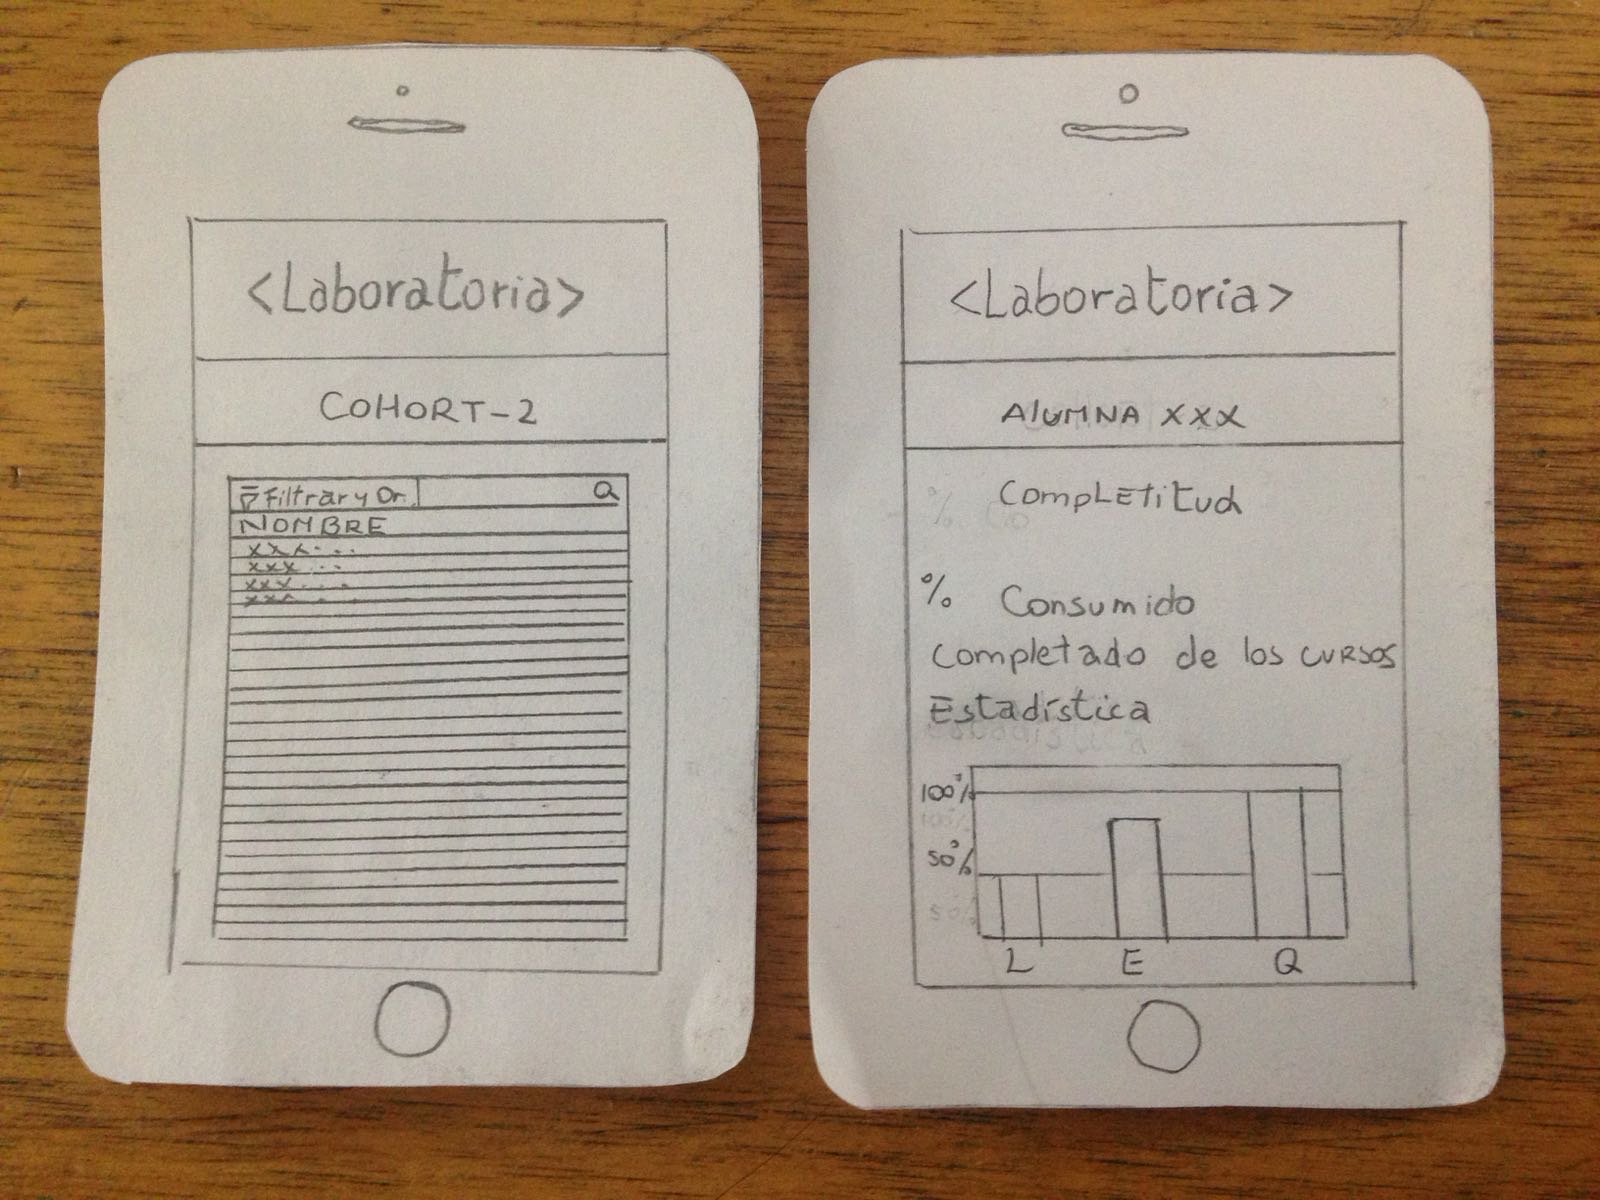 <Laboratoria>
COHORT-2
Filtrar y Or.
NOMBRE
xxx...
xxx...
xxx....
xxx...
<Laboratoria>
AlUMNA XXX
Completitud
% Consumido
Completado de los cursos
Estadística
100%
50%
L E Q